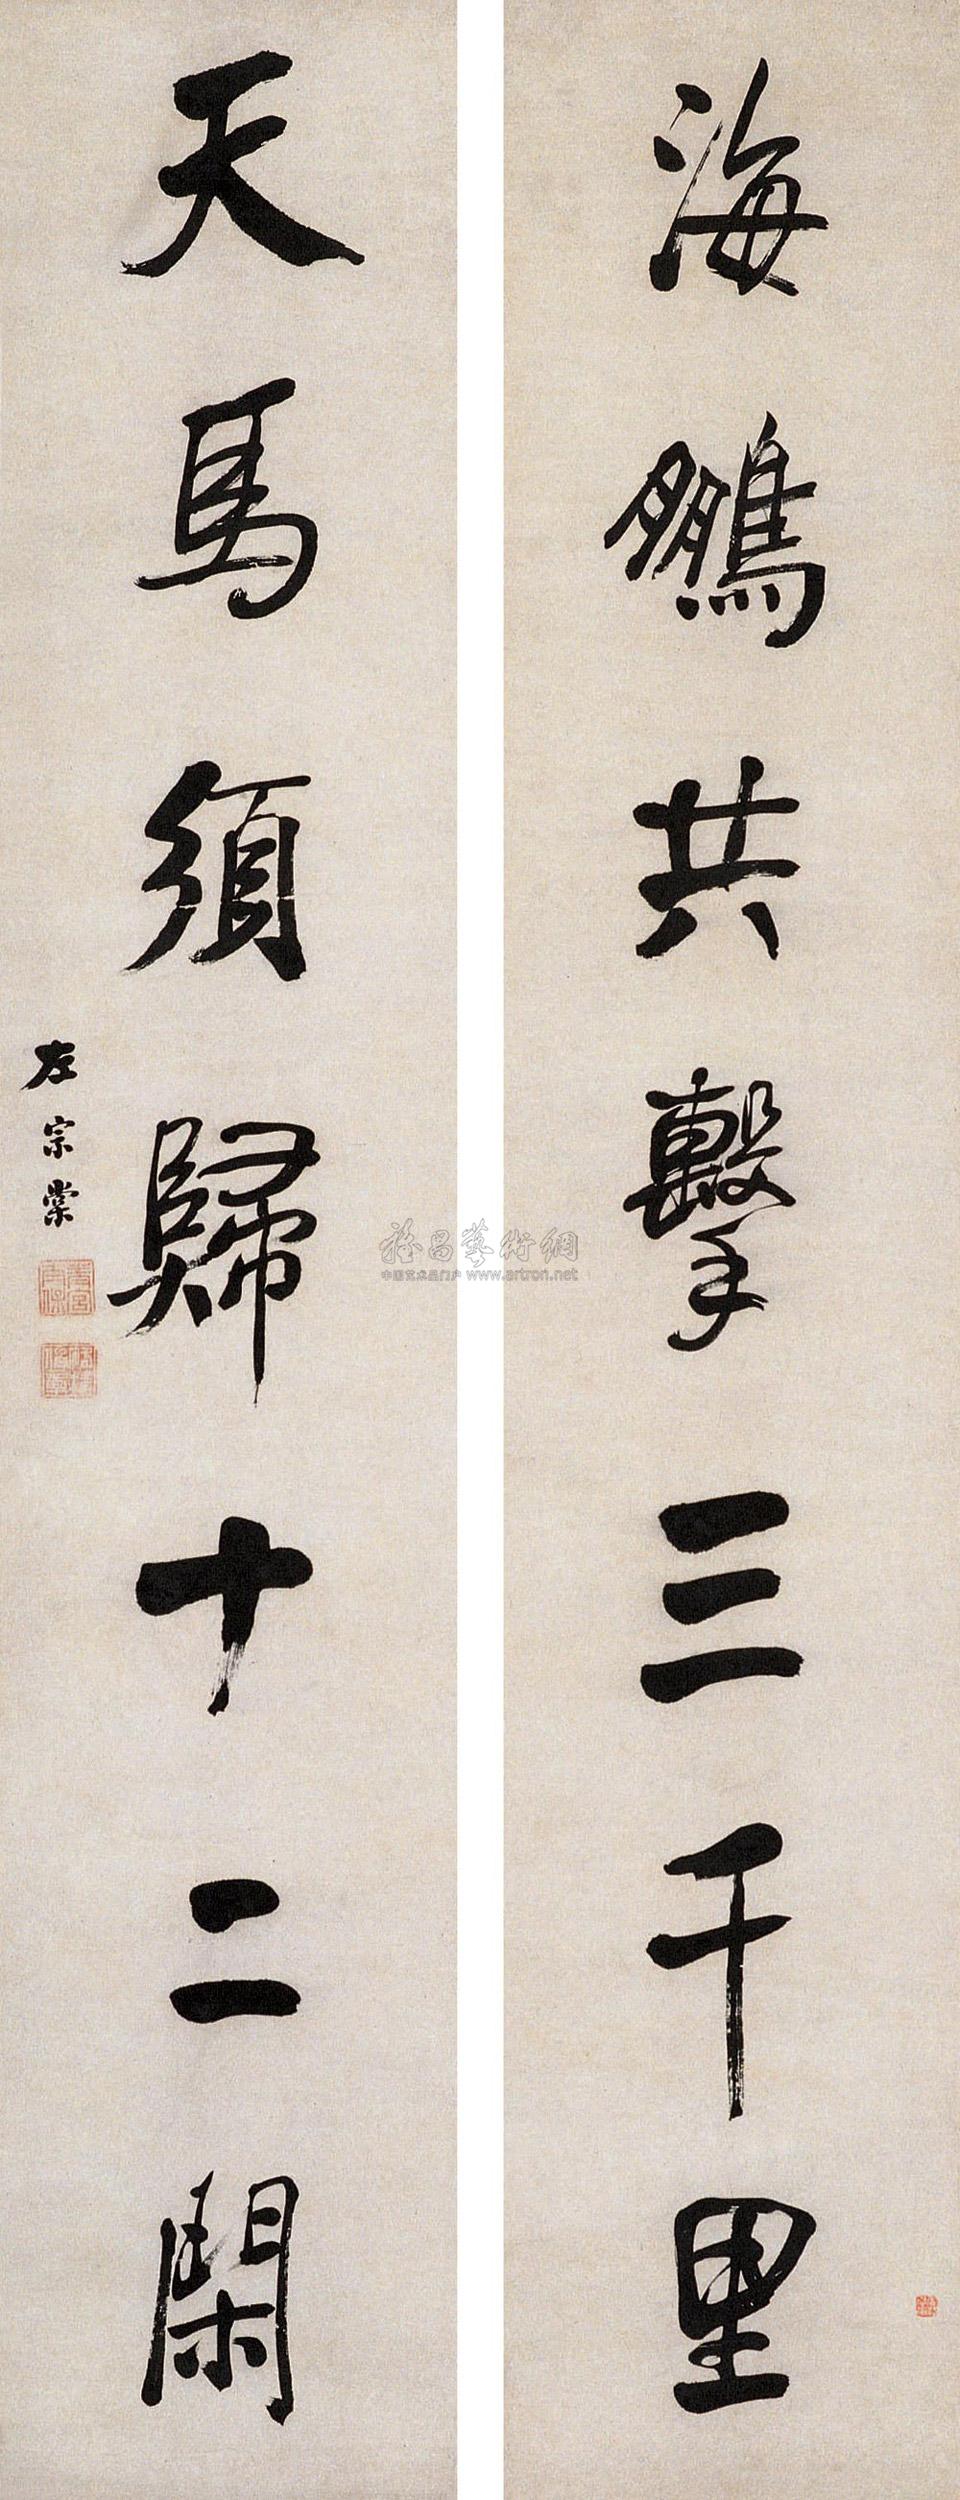 海鵬共擊三千里
天馬須歸十二閑
左宗棠
雅昌藝術網
中国艺术品门户 www.artron.net